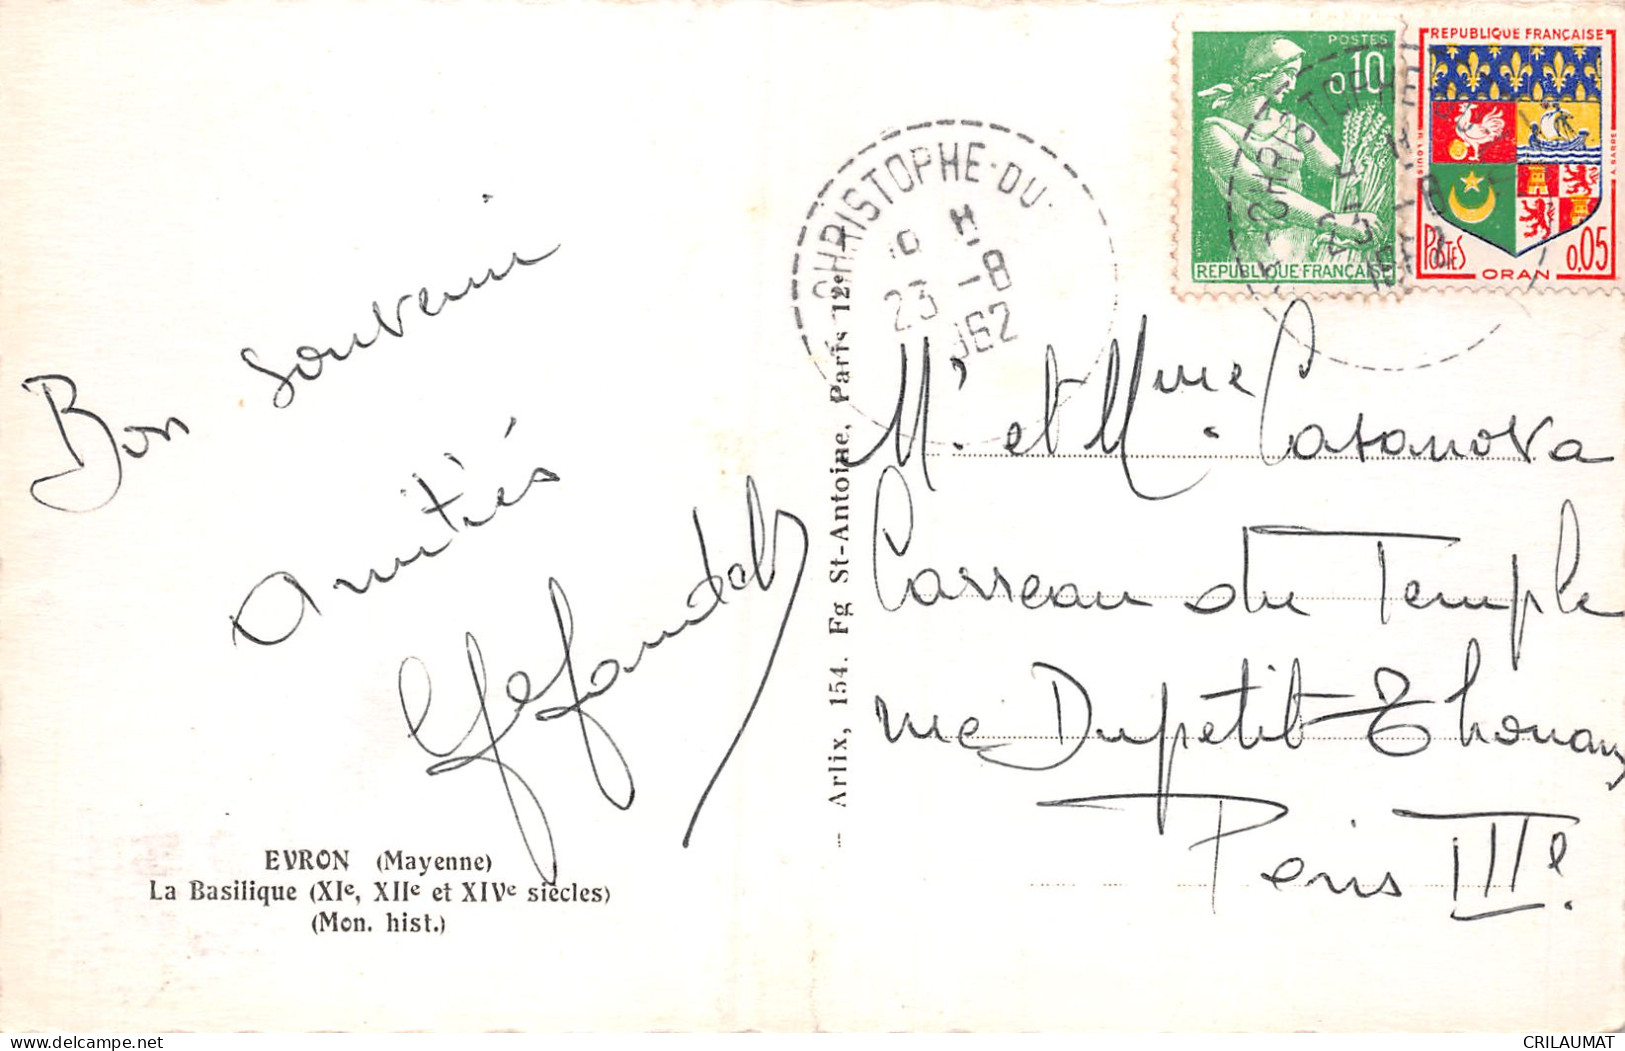 Bon souvenir
amitiés
EVRON (Mayenne)
La Basilique (XIe, XIIe et XIVe siècles)
(Mon. hist.)
Arlix, 154. Fg St-Antoine, Paris 12e
CHRISTOPHE-DU-
H
23 -8
POSTES
0,10
REPUBLIQUE FRANÇAISE
REPUBLIQUE FRANÇAISE
POSTES
0,05
ORAN
Mr et Mme Casanova
Carreau du Temple
rue Dupetit-Thouars
Paris IIIe.
CRILAUMAT